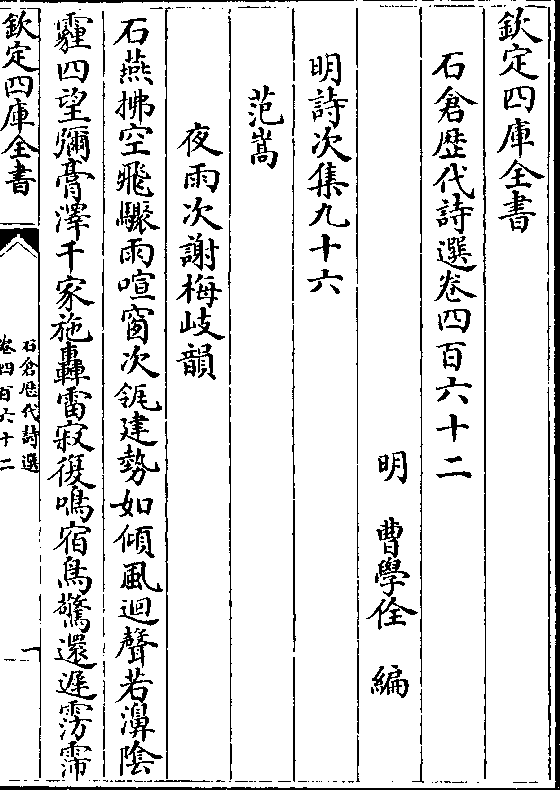 欽定四庫全書
石倉歷代詩選卷四百六十二
明　曹學佺　編
明詩次集九十六
范嵩
夜雨次謝梅岐韻
石燕拂空飛驟雨喧窗次瓴建勢如傾風迴聲若濞陰
霾四望彌膏澤千家施轟雷寂復鳴宿鳥驚還遲雱霈
欽定四庫全書
石倉歷代詩選
卷四百六十二
一